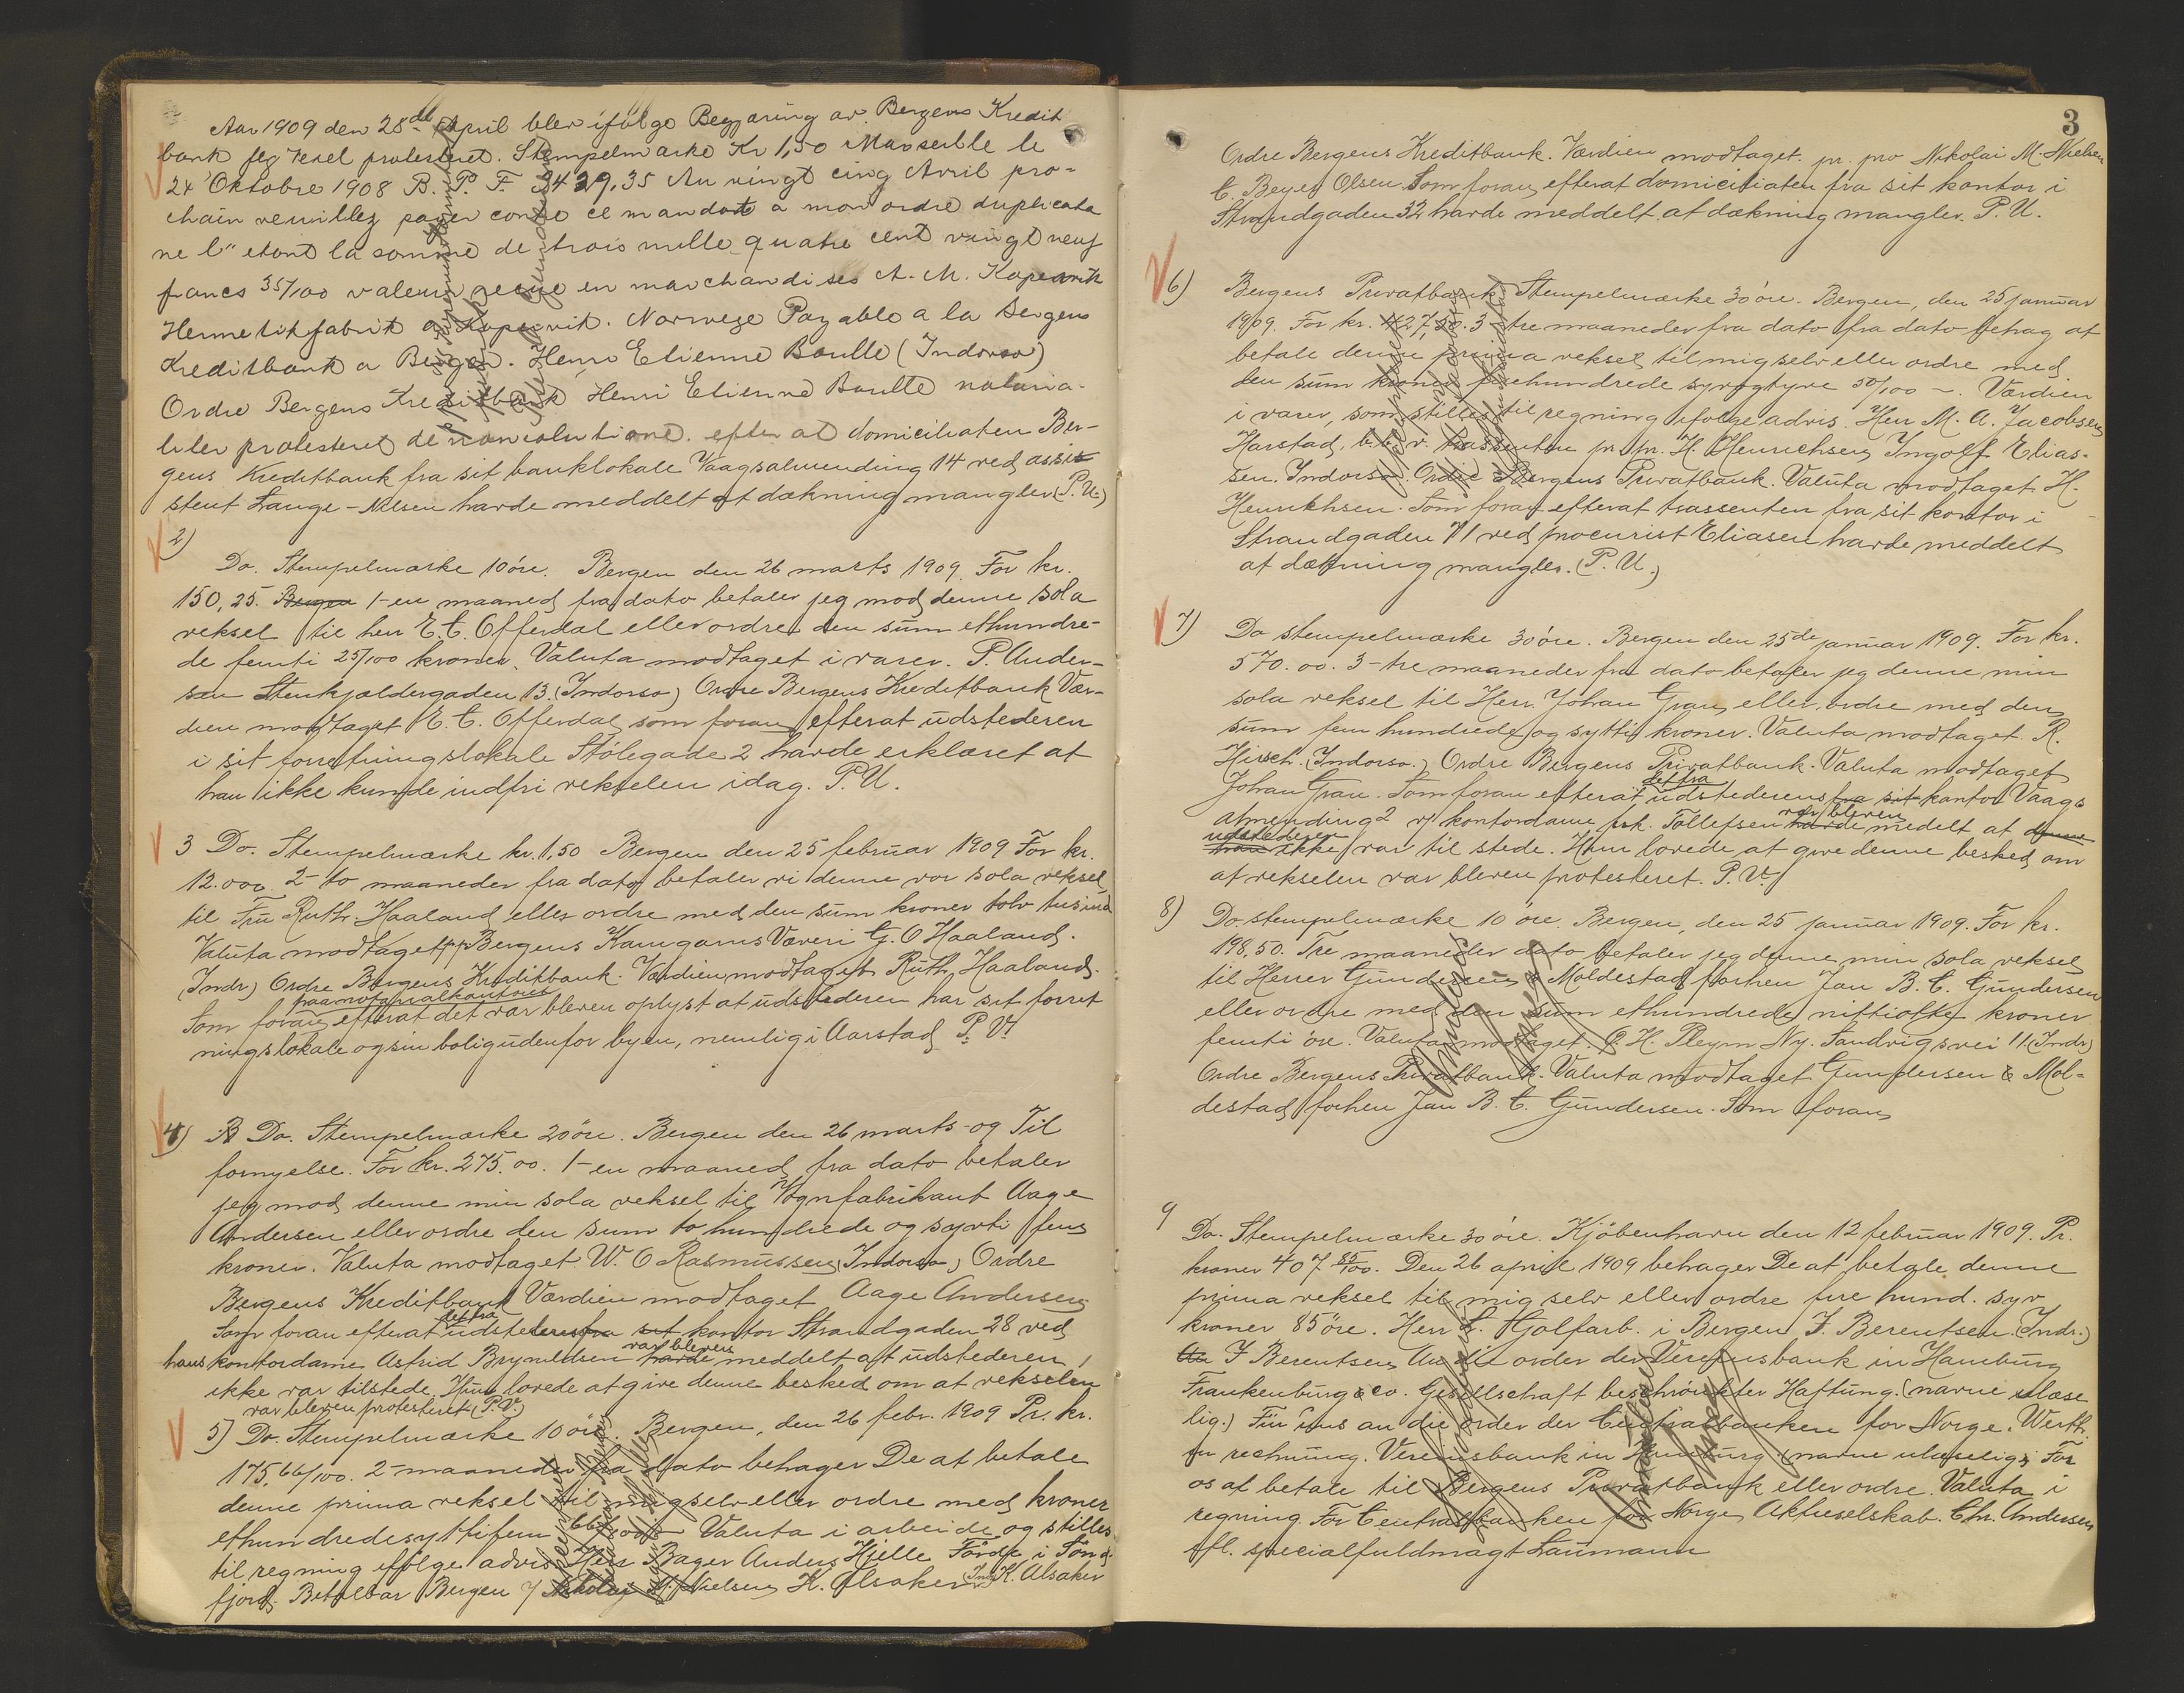 Aar 1909 den 28de April blev ifølge Begjæring av Bergens Kredit
bank flg vexel protesteret. Stempelmærke Kr 1,50 Marseille le
24 Oktobre 1908 B. P. F. 3429,35 Au vingt cinq Avril pro-
chain veuillez payer contre ce mandat a mon ordre duplicata
ne l" etant la somme de trois mille quatre cent vingt neuf
francs 35/100 valeur reçue en marchandises A. M. Kopervik
Hermetikfabrik a Kopervik. Norwege Payable a la Bergens
Kreditbank a Bergen. Henri Etienne Boulle (Indorso)
Ordre Bergens Kreditbank Henri Etienne Boulle notaria-
liter protesteret de non solutione. efter at domiciliaten Ber-
gens Kreditbank fra sit banklokale Vaagsalmending 14 ved assi-
stent Lange-Nilsen havde meddelt at dækning mangler (P.U.)
2)
Do. Stempelmærke 10 øre. Bergen den 26 marts 1909. For kr.
150,25. Bergen 1-en maaned fra dato betaler jeg mod denne sola
veksel til herr E. C. Offerdal eller ordre den sum ethundre-
de femti 25/100 kroner. Valuta modtaget i varer. P. Ander-
sen Stenkjældergaden 13. (Indorso) Ordre Bergens Kreditbank Vær-
dien modtaget E. C. Offerdal som foran efterat udstederen
i sit forretningslokale Stølegade 2 havde erklæret at
han ikke kunde indfri vekselen idag. P. U.
3 Do. Stempelmærke kr. 1,50 Bergen den 25 februar 1909 For kr.
12.000 2-to maaneder fra dato betaler vi denne vor sola veksel
til Fru Ruth Haaland eller ordre med den sum kroner tolv tusind
Valuta modtaget pp Bergens Kamgarns Væveri G. O Haaland.
(Indr) Ordre Bergens Kreditbank. Værdien modtaget Ruth Haaland.
paa notarialkontoret
Som foran efterat det var bleven oplyst at udstederen har sit forret
ningslokale og sin bolig udenfor byen, nemlig i Aarstad P. U.
4) Do. Stempelmærke 20 øre. Bergen den 26 marts - og Til
fornyelse. For kr. 275.00. 1-en maaned fra dato betaler
jeg mod denne min sola veksel til Vognfabrikant Aage
Andersen eller ordre den sum to hundrede og sytti fem
kroner. Valuta modtaget W. O Rasmussen (Indorso) Ordre
Bergens Kreditbank Værdien modtaget Aage Andersen
det fra
Som foran efterat udstederens fra sit kontor Strandgaden 28 ved
var bleven
hans kontordame Astrid Brynildsen havde meddelt at udstederen
ikke var tilstede. Hun lovede at give denne besked om at vekselen
var bleven protesteret (P.U.)
5) Do. Stempelmærke 10 øre. Bergen, den 26 febr. 1909 Pr. kr.
175,66/100. 2-maaneder fra dato behager De at betale
denne prima veksel til mig selv eller ordre med kroner
ethundredesyttifem 66/100 Valuta i arbeide og stilles
til regning ifølge advis Herr Bager Anders Hjelle Førde i Sønd-
fjord. Betalbar Bergen / Nikolay M. Nielsen K. Alsaker (Ind) K. Alsaker
3
Ordre Bergens Kreditbank. Værdien modtaget. pr. pro Nikolai M. Nielsen
C. Beyer Olsen. Som foran efterat domiciliaten fra sit kontor i
Strandgaden 32 havde meddelt at dækning mangler. P. U.
6) Bergens Privatbank Stempelmærke 30 øre. Bergen, den 25 januar
1909. For kr. 427,50. 3-tre maaneder fra dato fra dato behag at
betale denne prima veksel til mig selv eller ordre med
den sum kroner firehundrede syvogtyve 50/100 -. Værdien
i varer, som stilles til regning ifølge advis. Herr M. A. Jacobsen
Harstad, trassenten pr. pr. H. Henrichsen Ingolf Elias-
sen. Indorso. Ordre Bergens Privatbank. Valuta modtaget. H.
Henrichsen. Som foran efterat trassenten fra sit kontor i
Strandgaden 71 ved procurist Eliasen havde meddelt
at dækning mangler. (P. U.)
7) Do stempelmærke 30 øre. Bergen den 25de januar 1909. For kr.
570.00. 3-tre maaneder fra dato betaler jeg denne min
sola veksel til Herr Johan Gran eller ordre med den
sum fem hundrede og sytti kroner. Valuta modtaget. R.
Hirsch. (Indorso.) Ordre Bergens Privatbank. Valuta modtaget
det fra
Johan Gran. Som foran efterat udstederens fra sit kontor Vaags
var bleven
almending 2 v/ kontordame frk. Tollefsen havde medelt at denne
udstederen
han ikke var til stede. Hun lovede at give denne besked om
at vekselen var bleven protesteret. P. U.
8) Do. stempelmærke 10 øre. Bergen, den 25 januar 1909. For kr.
198.50. Tre maaneder dato betaler jeg denne min sola veksel
til Herrer Gundersen & Moldestad forhen Jan B. C. Gundersen
eller ordre med den sum ethundrede nittiotte kroner
femti øre. Valuta modtaget. P. H. Pleym Ny. Sandvigsvei 11 (Indr)
Ordre Bergens Privatbank. Valuta modtaget Gundersen & Mol-
destad forhen Jan B. C. Gundersen. Som foran
9
Do. Stempelmærke 30 øre. Kjøbenhavn den 12 februar 1909. Pr.
kroner 407 85/100. Den 26 april 1909 behager De at betale denne
prima veksel til mig selv eller ordre fire hund. syv
kroner 85 øre. Herr i Bergen J. Berentsen. (Indr.)
J Berentsen An die order der Vereinsbank in Hamburg
Frankenburg & co. Gesellschaft beschränkter Haftung. (navne ulæse
lig.) Für uns an die order der Centralbanken for Norge. Werth
in rechnung. Vereinsbank in Hamburg (navne ulæselig) For
os at betale til Bergens Privatbank eller ordre. Valuta i
regning. For Centralbanken for Norge, Aktieselskab. Chr. Andersen
ifl. specialfuldmagt Laumann